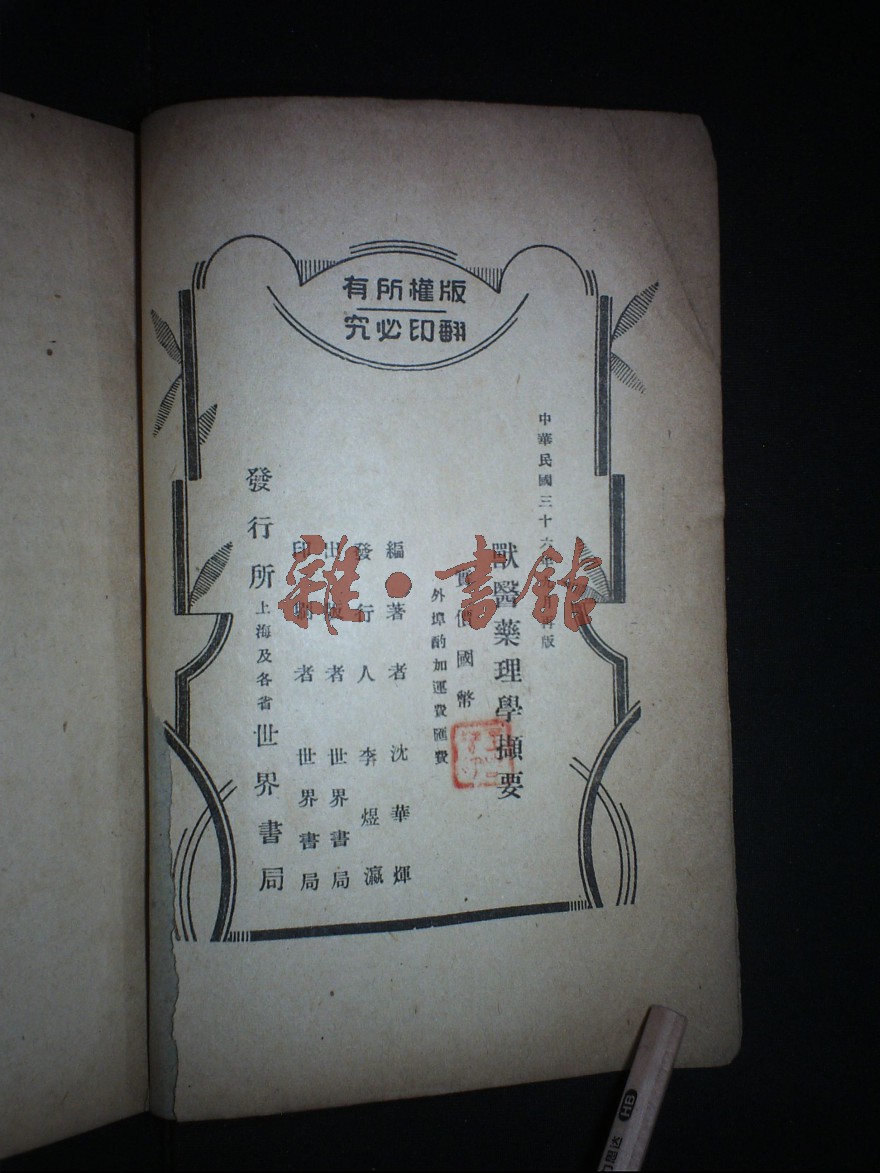 版權所有
翻印必究
中華民國三十六年 月 版
獸醫藥理學擷要
實價國幣
外埠酌加運費匯費
編著者 沈華煇
發行人 李煜瀛
出版者 世界書局
印刷者 世界書局
發行所 上海及各省 世界書局
雜·書館
HB